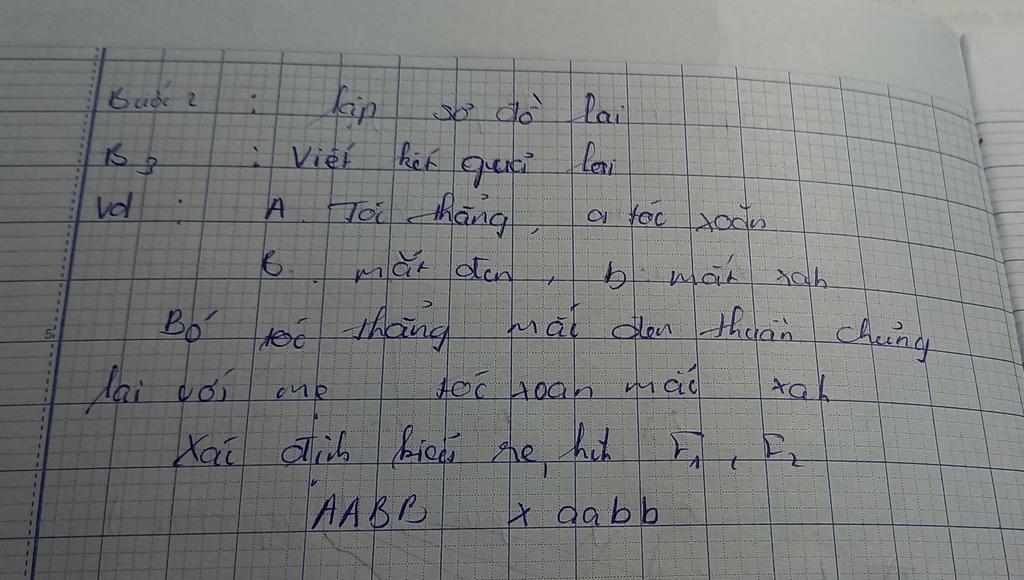 Bước 2 : lập sơ đồ lai
B3 : Viết kết quả lai
Vd : A. Tóc thẳng, a tóc xoăn
B. mắt đen, b. mắt xah
Bố tóc thẳng mắt đen thuần chủng
lai với mẹ tóc xoan mắt xah
Xác địh kiểu ge, hìh F1, F2
AABB x aabb